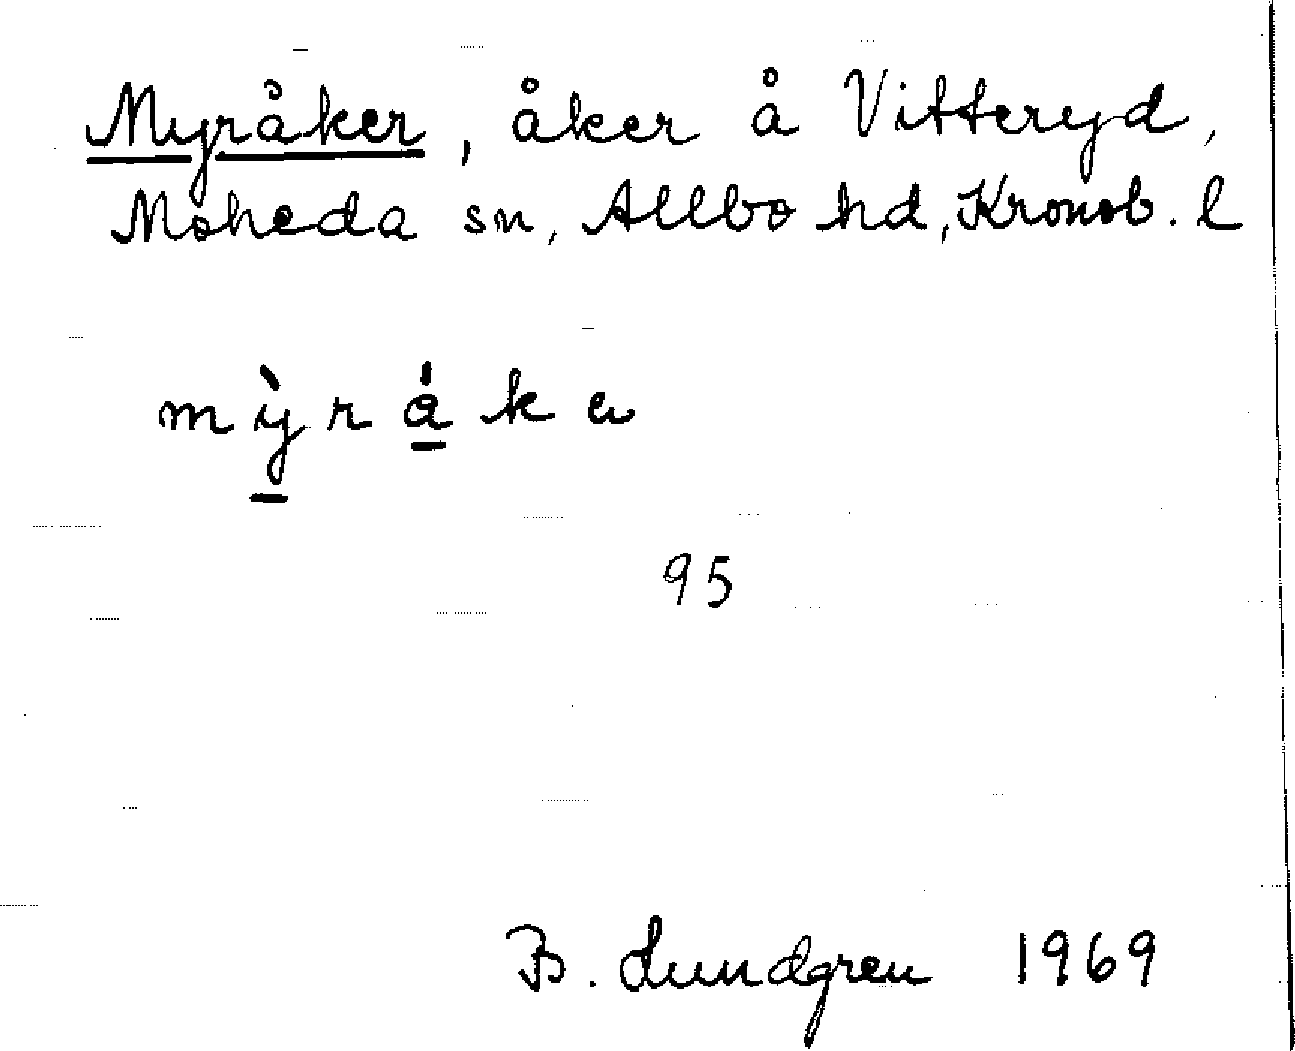 Myråker, åker å Vitteryd,
Moheda sn, Allbo hd, Kronob. l
mỳ̱rá̱kɐ
95
B. Lundgren 1969